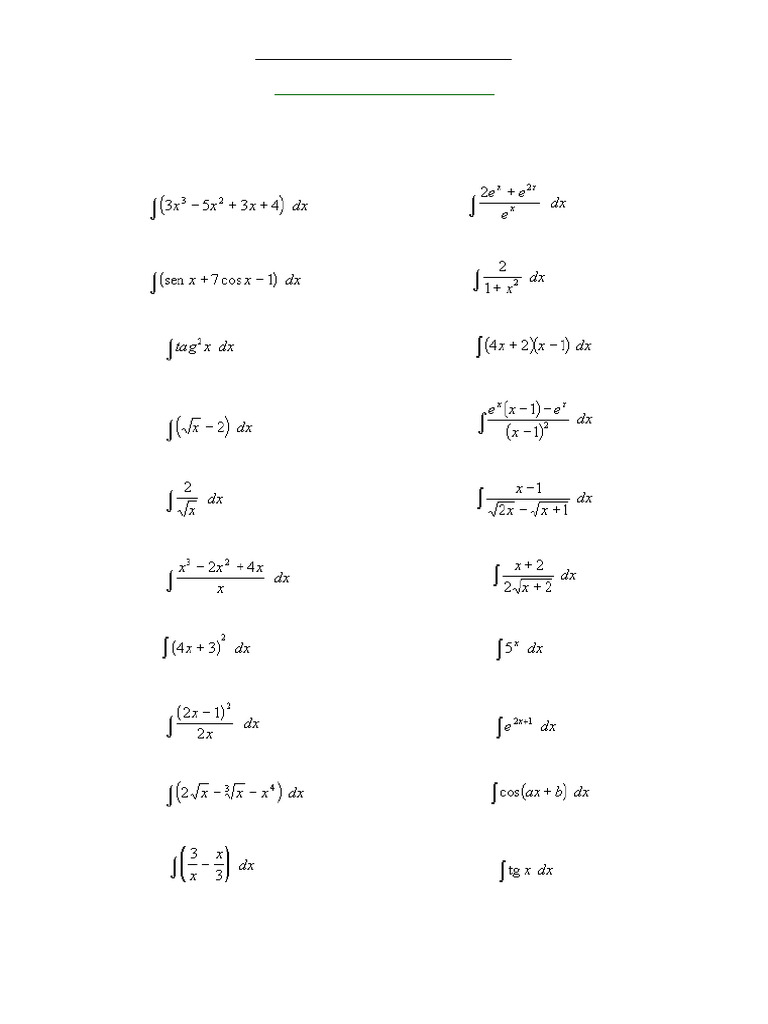 ∫(3x³ − 5x² + 3x + 4) dx
∫(2eˣ + e²ˣ)/eˣ dx
∫(sen x + 7 cos x − 1) dx
∫2/(1 + x²) dx
∫tag² x dx
∫(4x + 2)(x − 1) dx
∫(√x − 2) dx
∫(eˣ(x − 1) − eˣ)/(x − 1)² dx
∫2/√x dx
∫(x − 1)/(√(2x) − √(x + 1)) dx
∫(x³ − 2x² + 4x)/x dx
∫(x + 2)/(2√(x + 2)) dx
∫(4x + 3)² dx
∫5ˣ dx
∫(2x − 1)²/(2x) dx
∫e²ˣ⁺¹ dx
∫(2√x − ∛x − x⁴) dx
∫cos(ax + b) dx
∫(3/x − x/3) dx
∫tg x dx